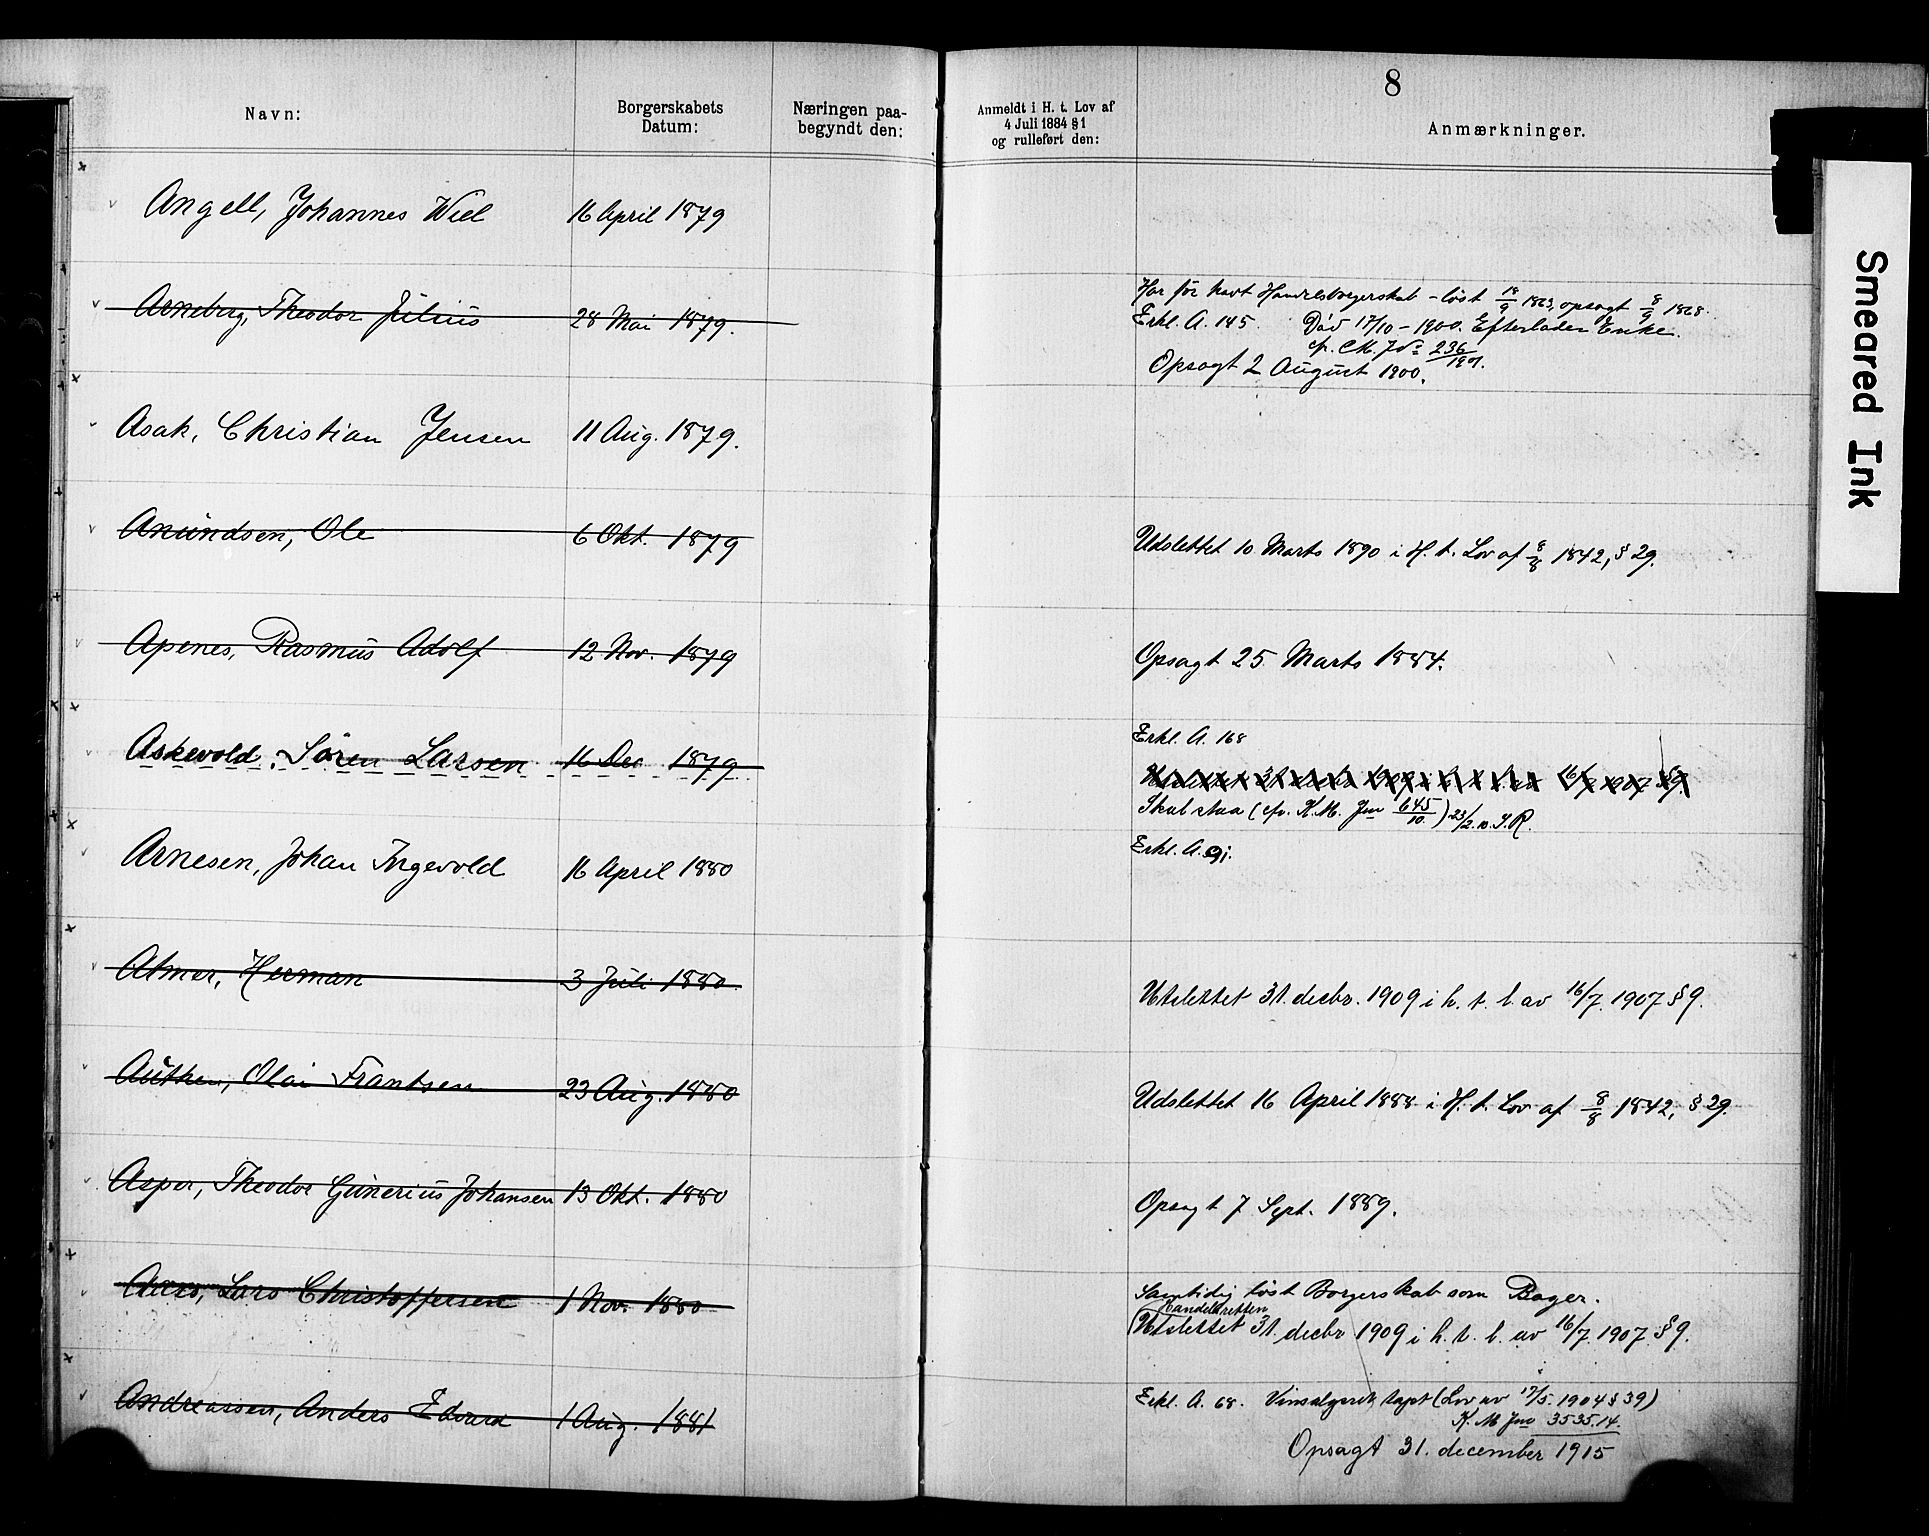 8
Navn:
Borgerskabets Datum:
Næringen paa-begyndt den:
Anmeldt i H. t. Lov af 4 Juli 1884 § 1 og rulleført den:
Anmærkninger.
Angell, Johannes Wiel 16 April 1879
Arneberg, Theodor Julius 28 Mai 1879.
Har før havt Handelsborgerskab - löst 18/9 1863, opsagt 8/9 1868.
Erkl. A. 145. Död 17/10 - 1900. Efterlader Enke.
cfr. CM. J No 236/1901.
Opsagt 2 August 1900.
Asak, Christian Jensen 11 Aug. 1879.
Anundsen, Ole 6 Okt. 1879
Udslettet 10 Marts 1890 i H. t. Lov af 8/8 1842, § 29.
Apenes, Rasmus Adolf 12 Nov. 1879
Opsagt 25 Marts 1884.
Askevold, Sören Larsen 16 Dec 1879
Erkl. A. 168
Skal staa (cfr. K.M. Jno 645/10.) 23/2.10. S.R.
Arnesen, Johan Ingevold 16 April 1880
Erkl. A. 91.
Atmer, Herman 3 Juli 1880.
Utslettet 31. decbr. 1909 i h. t. l. av 16/7. 1907 § 9.
Authen, Olai Frantsen 23 Aug. 1880
Udslettet 16 April 1888 i H. t. Lov af 8/8 1842, § 29.
Asper, Theodor Gunerius Johansen 13 Okt. 1880
Opsagt 7 Sept. 1889.
Lars Christoffersen 1 Nov. 1880
Samtidig löst Borgerskab som Bager.
Handelsretten
Utslettet 31. decbr 1909 i h. t. l. av 16/7. 1907 § 9.
Andreassen, Anders Edvard 1 Aug. 1881
Erkl. A. 68. Vinsalgsrett tapt (Lov av 17/5. 1904 § 39)
K. M Jno 3535.14.
Opsagt 31. december 1915
Smeared Ink